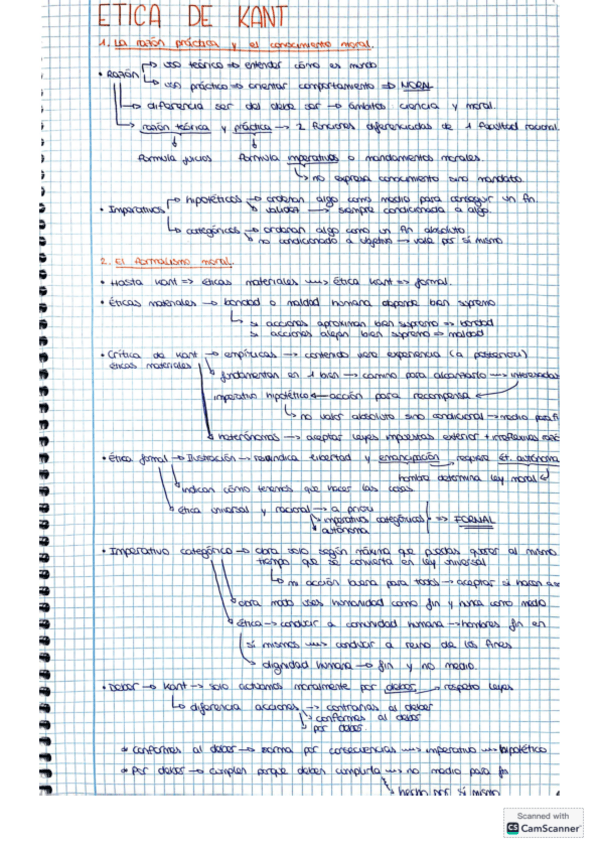 ETICA DE KANT
1. La razón práctica y el conocimiento moral.
uso teórico → entender cómo es mundo
• Razón
uso práctico → orientar comportamiento → MORAL
diferencia ser del deber ser → ámbitos ciencia y moral.
razón teórica y práctica → 2 funciones diferenciadas de 1 facultad racional.
formula juicios formula imperativos o mandamientos morales.
no expresa conocimiento sino mandato.
hipotéticos → ordenan algo como medio para conseguir un fin.
• Imperativos validez → siempre condicionada a algo.
categóricos → ordenan algo como un fin absoluto
no condicionado a → vale por sí mismo
2. El formalismo moral.
• Hasta Kant => éticas materiales ética Kant => formal.
• Éticas materiales → bondad o maldad humana depende bien supremo
si acciones aproximan bien supremo => bondad
si acciones alejan bien supremo => maldad
• Crítica de Kant → empíricas → contenido experiencia (a posteriori)
éticas materiales fundamentan en 1 bien → camino para alcanzarlo → interesadas
imperativo hipotético ← acción para recompensa
no valor absoluto sino condicional → medio para
heterónomas → aceptar leyes impuestas exterior +
• Ética formal → Ilustración → reivindica libertad y emancipación respeta ét. autónoma
hombre determina ley moral
indican cómo tenemos que hacer las cosas
ética universal y racional → a priori
imperativos categóricos => FORMAL
autónoma
• Imperativo categórico → obra solo según máxima que puedas querer al mismo
tiempo que se convierta en ley universal
mi acción buena para todos → aceptar si hacen
obra modo uses humanidad como fin y nunca como medio
ética → conducir a comunidad humana → hombres fin en
sí mismos conducir a reino de los fines
dignidad humana → fin y no medio.
• Deber → Kant → solo actuamos moralmente por deber, respeto leyes
diferencia acciones → contrarias al deber
conformes al deber
por deber.
conformes al deber → por consecuencias → imperativo hipotético
Por deber → cumplen porque deben cumplirla no medio para fin
hecho por sí mismo
Scanned with
CS CamScanner